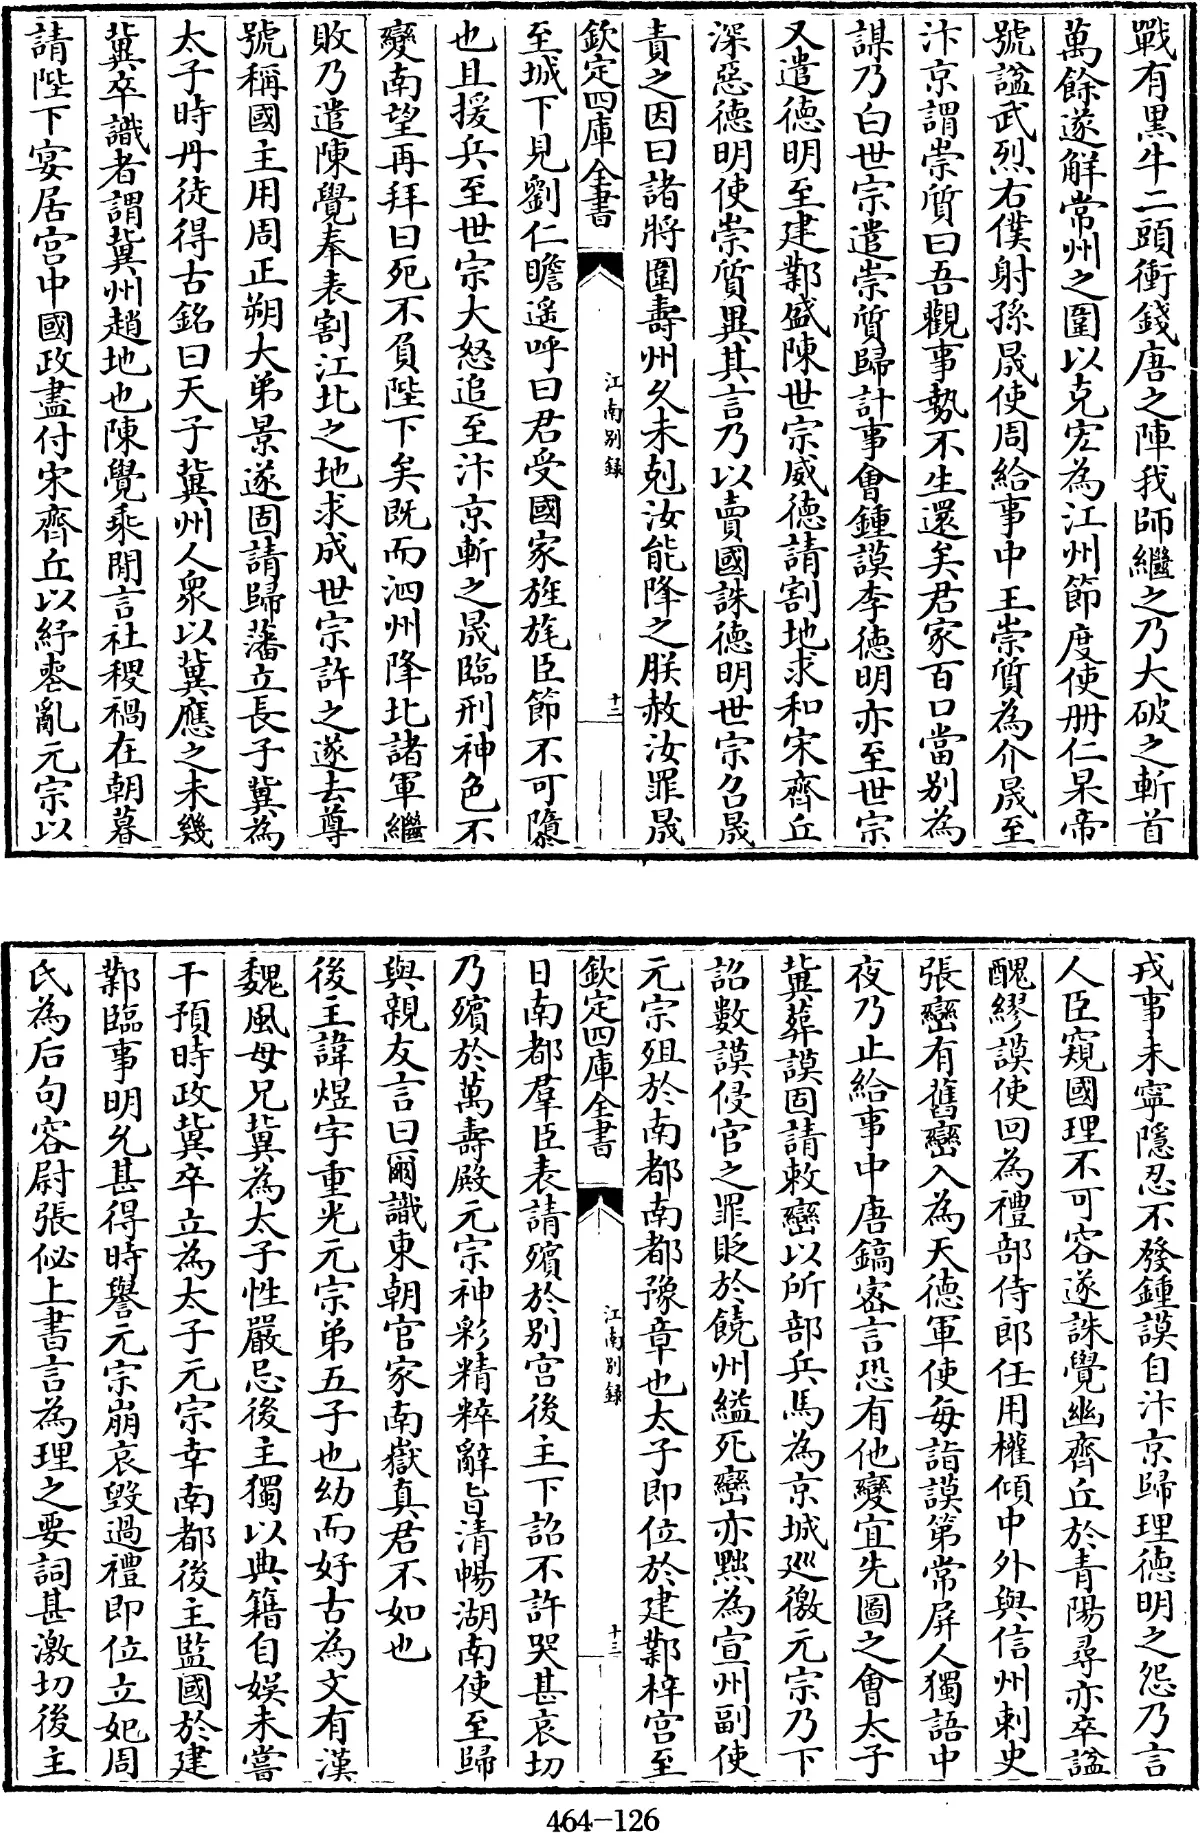 戰有黒牛二頭衝錢唐之陣我師繼之乃大破之斬首
萬餘遂解常州之圍以克宏為江州節度使冊仁杲帝
號諡武烈右僕射孫晟使周給事中王崇質為介晟至
汴京謂崇質曰吾觀事勢不生還矣君家百口當别為
謀乃白世宗遣崇質歸計事會鍾謨李徳明亦至世宗
又遣德明至建鄴盛陳世宗威徳請割地求和宋齊丘
深惡德明使崇質異其言乃以賣國誅德明世宗召晟
責之因曰諸將圍壽州久未剋汝能降之朕赦汝罪晟
欽定四庫全書
江南别録
十二
至城下見劉仁瞻遥呼曰君受國家旌旄臣節不可隳
也且援兵至世宗大怒追至汴京斬之晟臨刑神色不
變南望再拜曰死不負陛下矣既而泗州降北諸軍繼
敗乃遣陳覺奉表割江北之地求成世宗許之遂去尊
號稱國主用周正朔大弟景遂固請歸藩立長子冀為
太子時丹徒得古銘曰天子冀州人衆以冀應之未幾
冀卒識者謂冀州趙地也陳覺乘閒言社稷禍在朝暮
請陛下宴居宫中國政盡付宋齊丘以紓喪亂元宗以
戎事未寧隱忍不發鍾謨自汴京歸理德明之怨乃言
人臣窺國理不可容遂誅覺幽齊丘於青陽尋亦卒諡
醜繆謨使回為禮部侍郎任用權傾中外與信州刺史
張巒有舊巒入為天德軍使每詣謨第常屏人獨語中
夜乃止給事中唐鎬密言恐有他變宜先圖之會太子
冀葬謨固請敕巒以所部兵馬為京城廵徼元宗乃下
詔數謨侵官之罪貶於饒州縊死巒亦黜為宣州副使
元宗殂於南都南都豫章也太子即位於建鄴梓宫至
欽定四庫全書
江南别録
十三
日南都羣臣表請殯於别宫後主下詔不許哭甚哀切
乃殯於萬壽殿元宗神彩精粹辭旨清暢湖南使至歸
與親友言曰爾識東朝官家南嶽真君不如也
後主諱煜字重光元宗弟五子也幼而好古為文有漢
魏風母兄冀為太子性嚴忌後主獨以典籍自娱未嘗
干預時政冀卒立為太子元宗幸南都後主監國於建
鄴臨事明允甚得時譽元宗崩哀毀過禮即位立妃周
氏為后句容尉張佖上書言為理之要詞甚激切後主
464-126